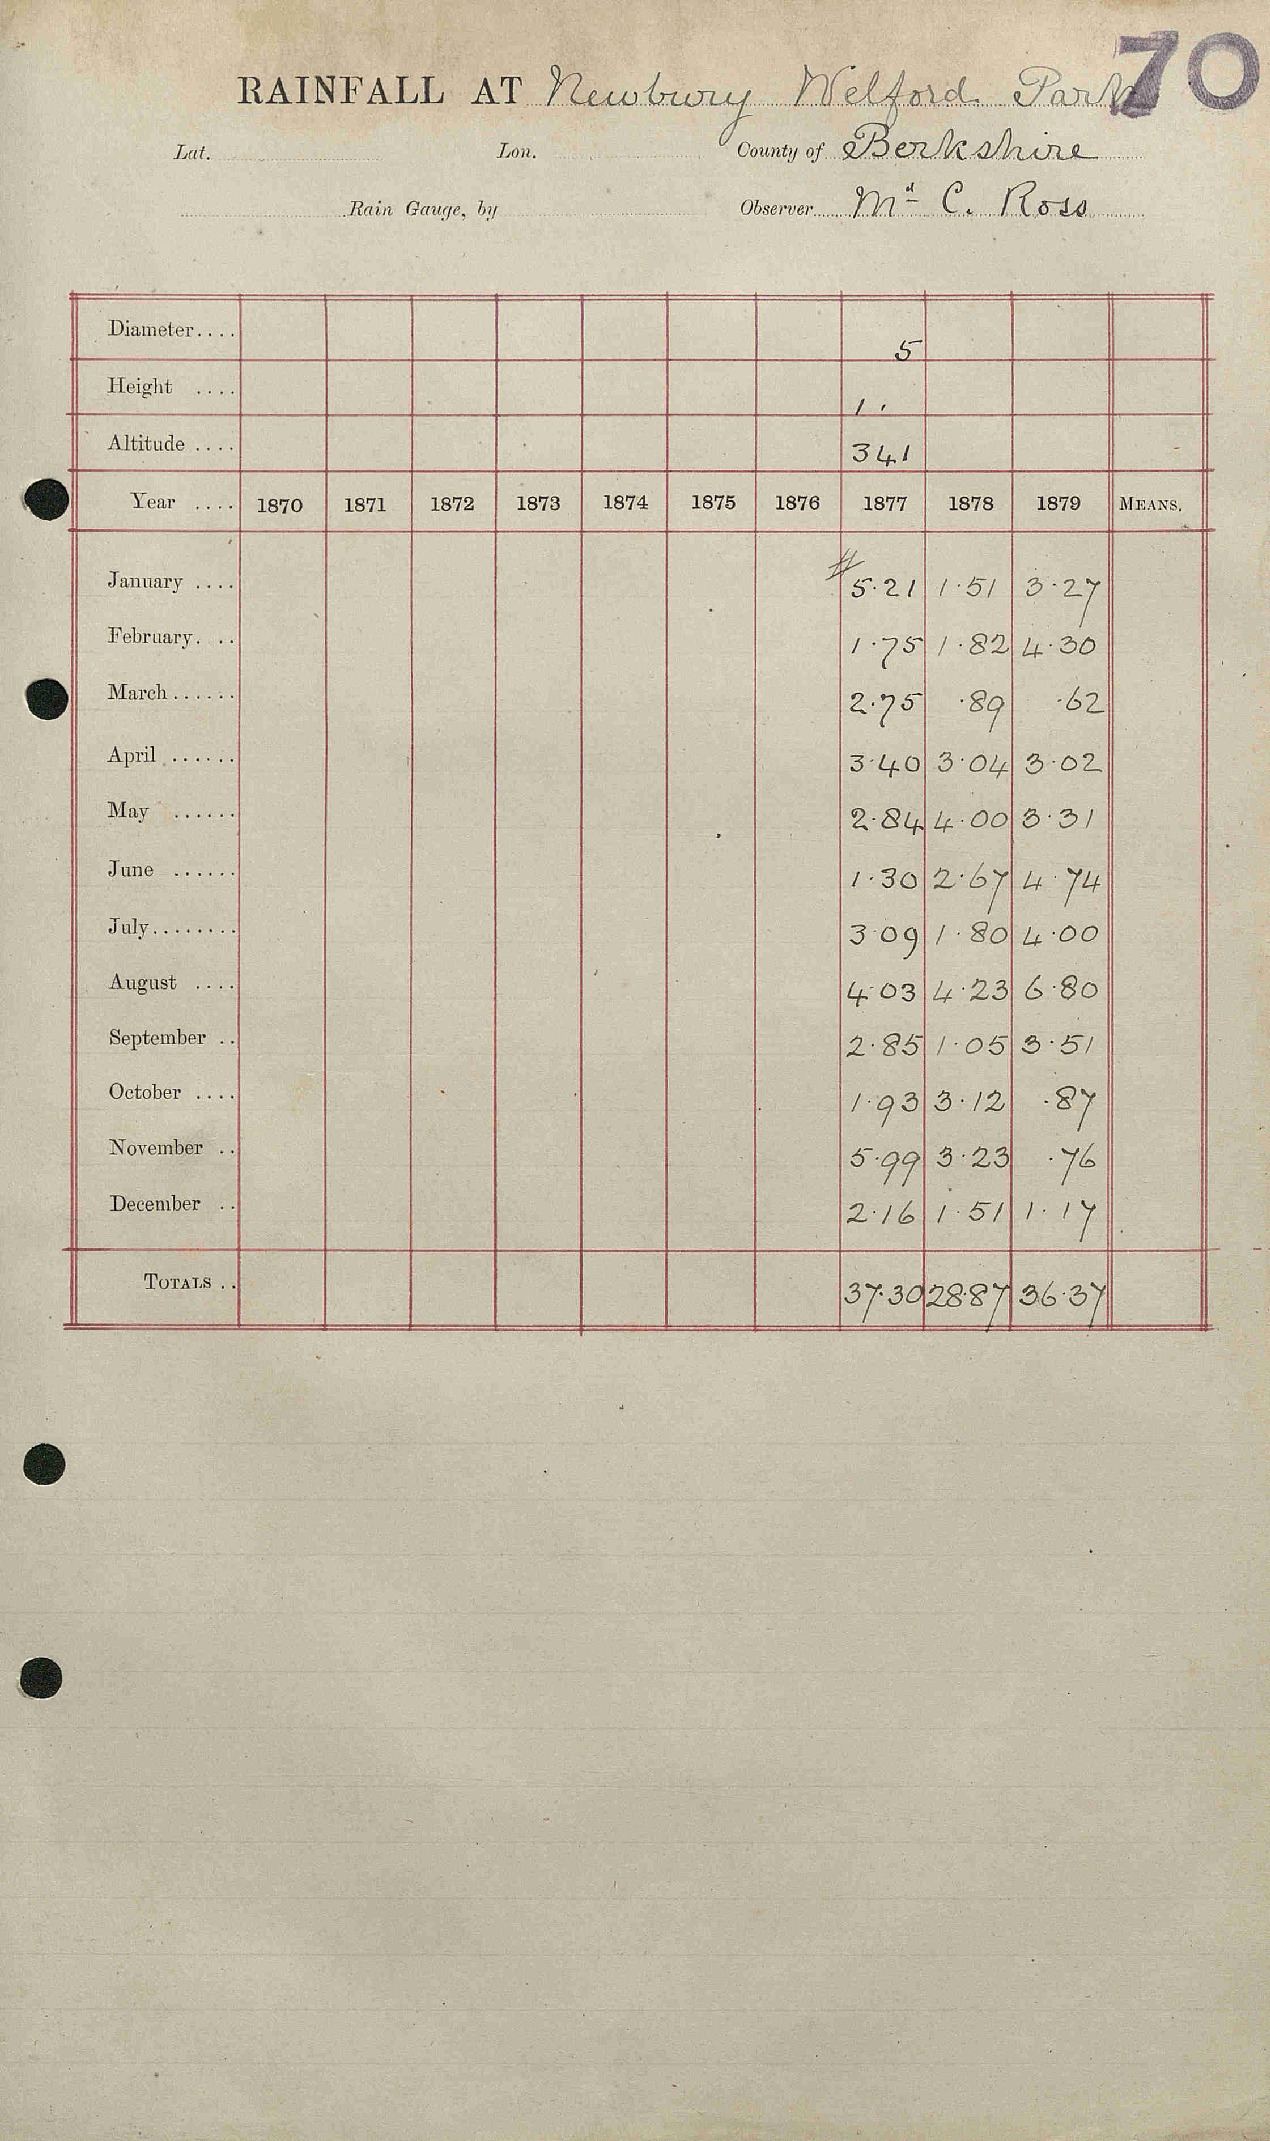 70
RAINFALL AT Newbury Welford Park
Lat. Lon. County of Berkshire
Rain Gauge, by Observer Mr C. Ross
Diameter.... 5
Height .... 1 '
Altitude .... 341
Year .... 1870 1871 1872 1873 1874 1875 1876 1877 1878 1879 MEANS.
January .... # 5.21 1.51 3.27
February. .. 1.75 1.82 4.30
March...... 2.75 .89 .62
April ...... 3.40 3.04 3.02
May ...... 2.84 4.00 3.31
June ...... 1.30 2.67 4.74
July........ 3.09 1.80 4.00
August .... 4.03 4.23 6.80
September .. 2.85 1.05 3.51
October .... 1.93 3.12 .87
November .. 5.99 3.23 .76
December .. 2.16 1.51 1.17
TOTALS .. 37.30 28.87 36.37